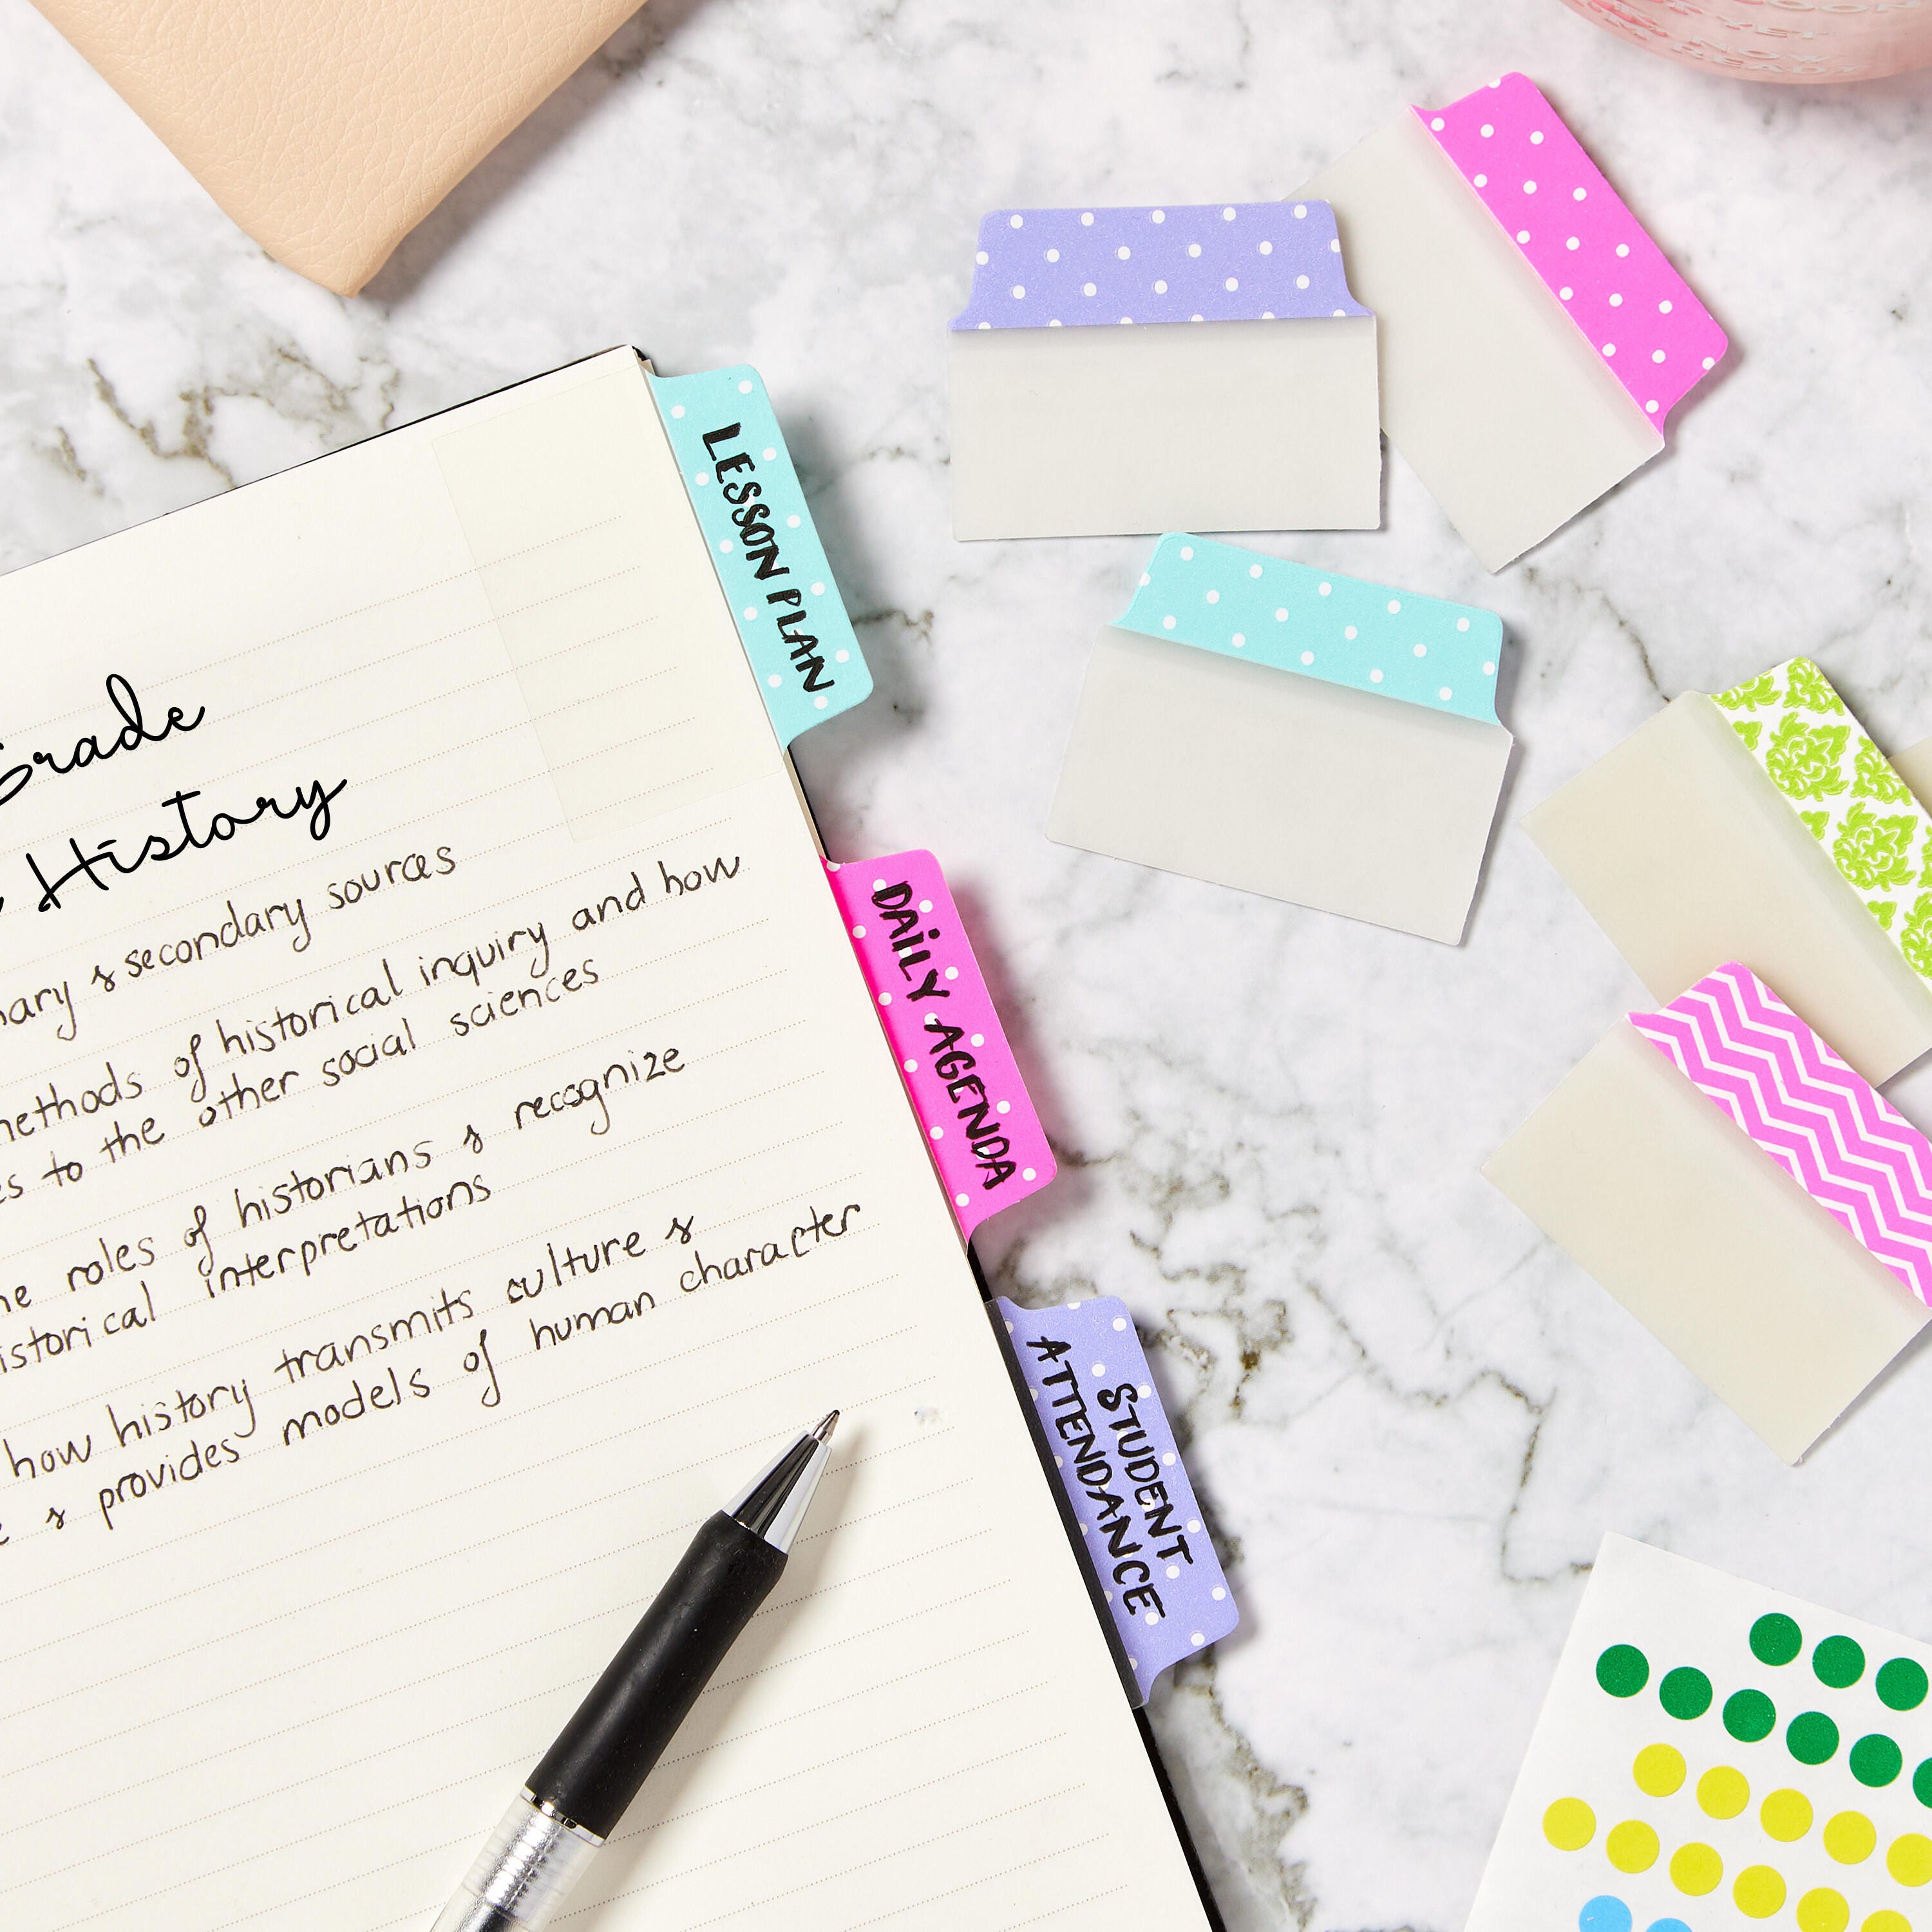 Grade
History
secondary sources
methods of historical inquiry and how
to the other social sciences
roles of historians & recognize
historical interpretations
how history transmits culture &
& provides models of human character
LESSON PLAN
DAILY AGENDA
STUDENT
ATTENDANCE